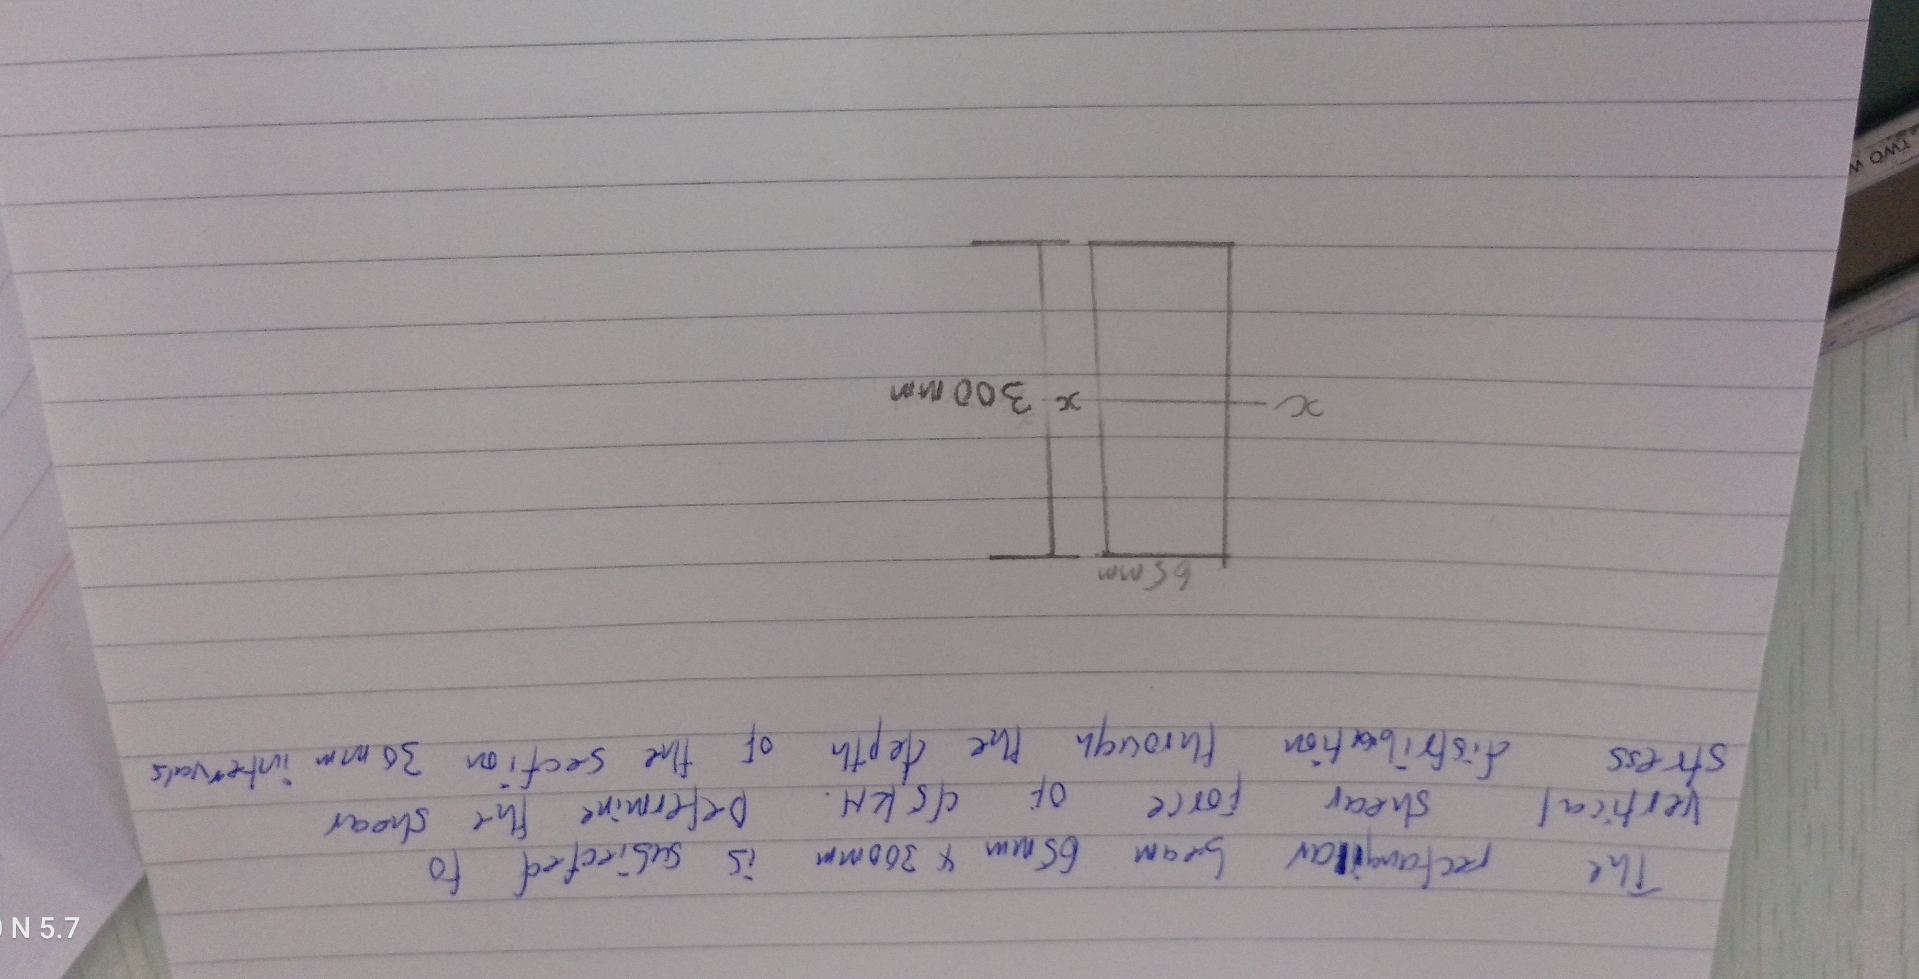 The rectangular beam 65mm x 300mm is subjected to
vertical shear force of 45kN. Determine the shear
stress distribution through the depth of the section 30mm intervals
65mm
x x 300mm
TWO W
N 5.7